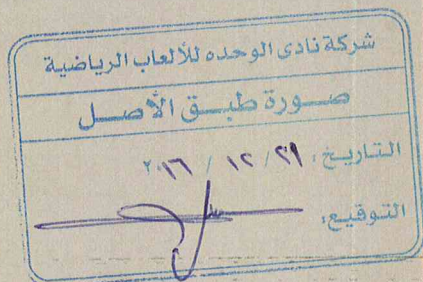 شركة نادى الوحده للألعاب الرياضية
صورة طبق الأصل
التاريخ: ٢٩ / ١٢ / ٢٠١٦
التوقيع: